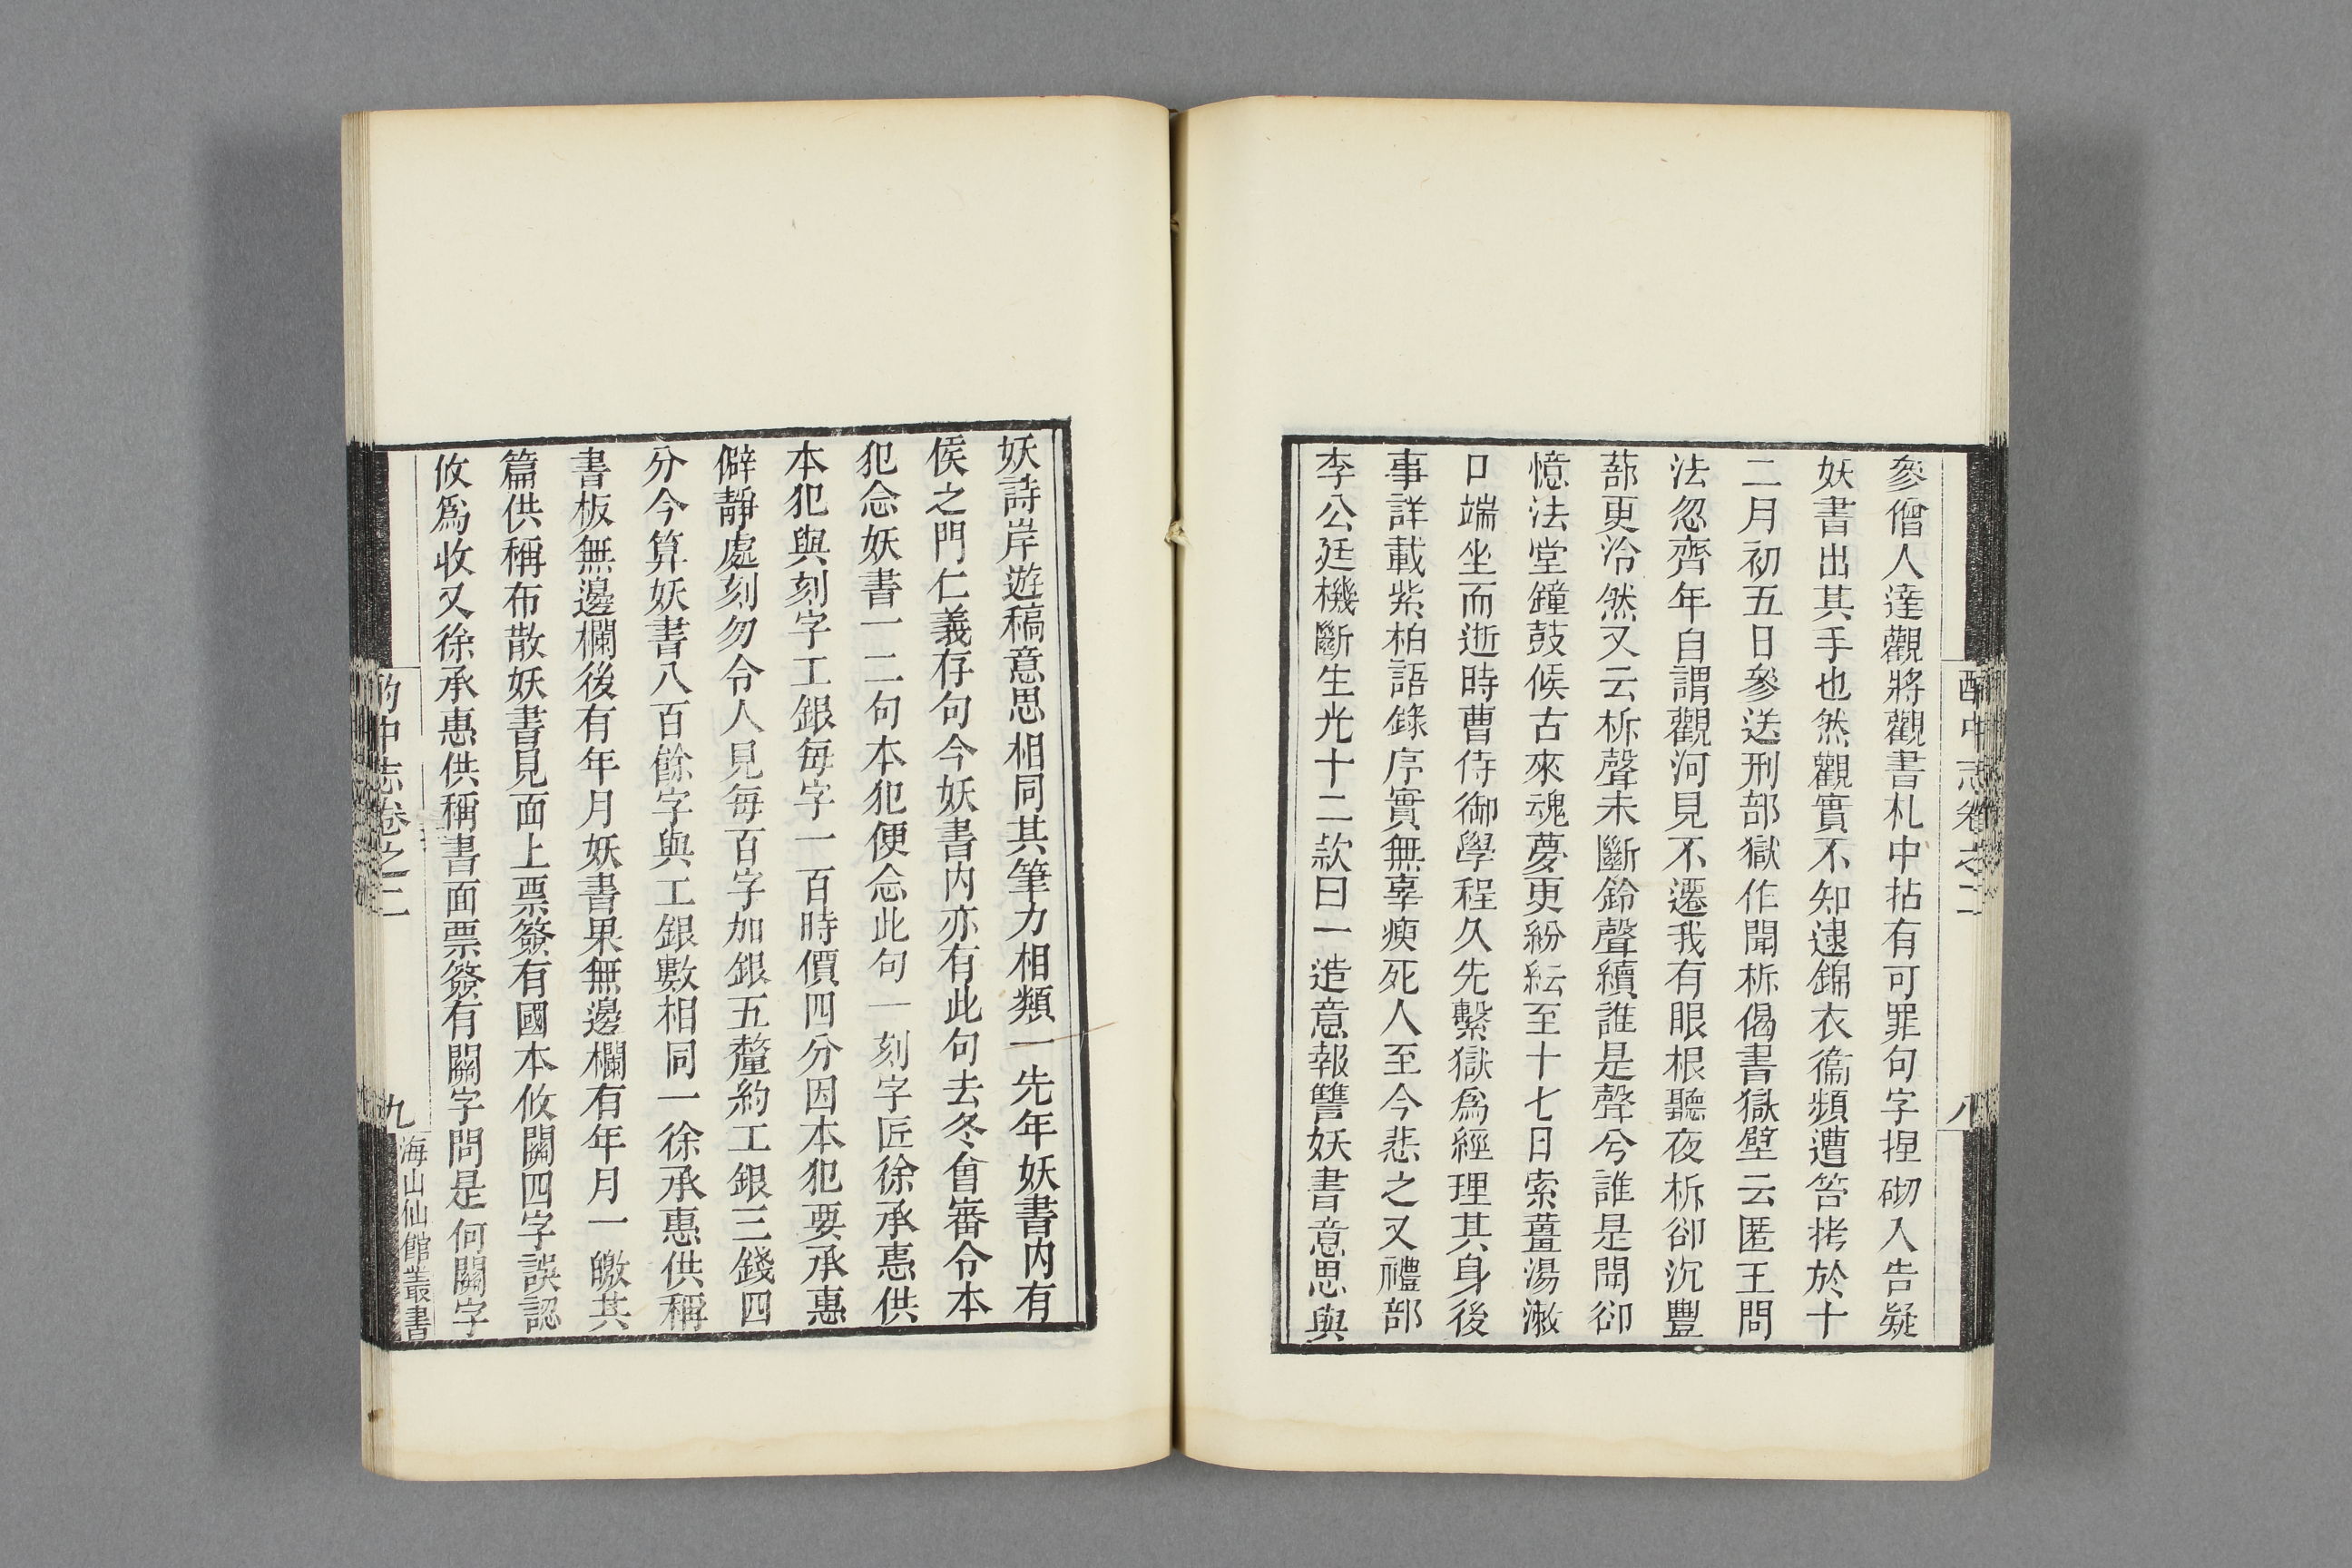 參僧人達觀將觀書札中拈有可罪句字揑砌入告疑
妖書出其手也然觀實不知逮錦衣衞頻遭笞拷於十
二月初五日參送刑部獄作聞柝偈書獄壁云匿王問
法忽齊年自謂觀河見不遷我有眼根聽夜柝卻沉豐
蔀更泠然又云柝聲未斷鈴聲續誰是聲兮誰是聞卻
憶法堂鐘鼓候古來魂夢更紛紜至十七日索薑湯漱
口端坐而逝時曹侍御學程久先繫獄爲經理其身後
事詳載紫柏語錄序實無辜瘐死人至今悲之又禮部
李公廷機斷生光十二款曰一造意報讐妖書意思與
酌中志卷之二
八
妖詩岸遊稿意思相同其筆力相類一先年妖書内有
侯之門仁義存句今妖書内亦有此句去冬會審令本
犯念妖書一二句本犯便念此句一刻字匠徐承惠供
本犯與刻字工銀每字一百時價四分因本犯要承惠
僻靜處刻勿令人見每百字加銀五釐約工銀三錢四
分今算妖書八百餘字與工銀數相同一徐承惠供稱
書板無邊欄後有年月妖書果無邊欄有年月一皦其
篇供稱布散妖書見面上票簽有國本攸關四字誤認
攸爲收又徐承惠供稱書面票簽有關字問是何關字
酌中志卷之二
九
海山仙館叢書